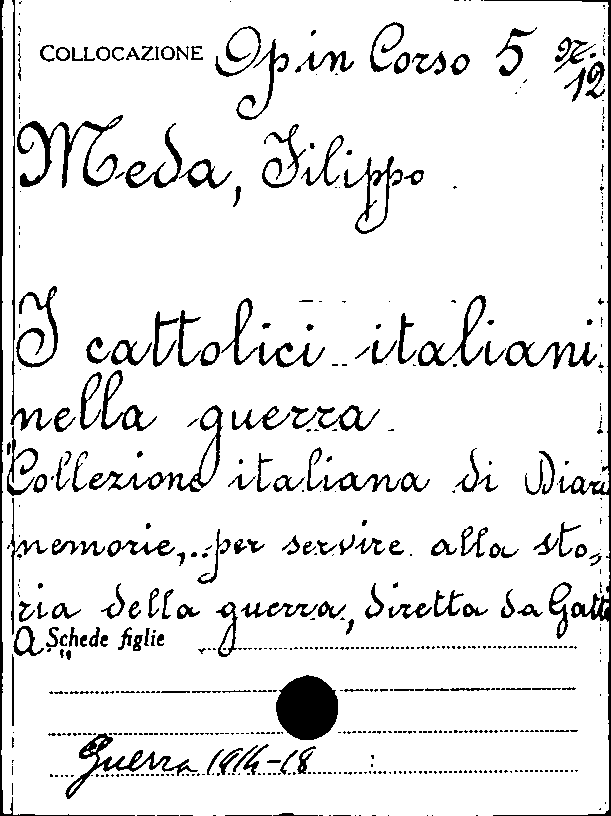 COLLOCAZIONE Op. in Corso 5 nr. 12
Meda, Filippo
I cattolici italiani
nella guerra
"Collezione italiana di Diari
memorie,..per servire alla sto,
ria della guerra, diretta da Gatti
A."
Schede figlie
Guerra 1914-18